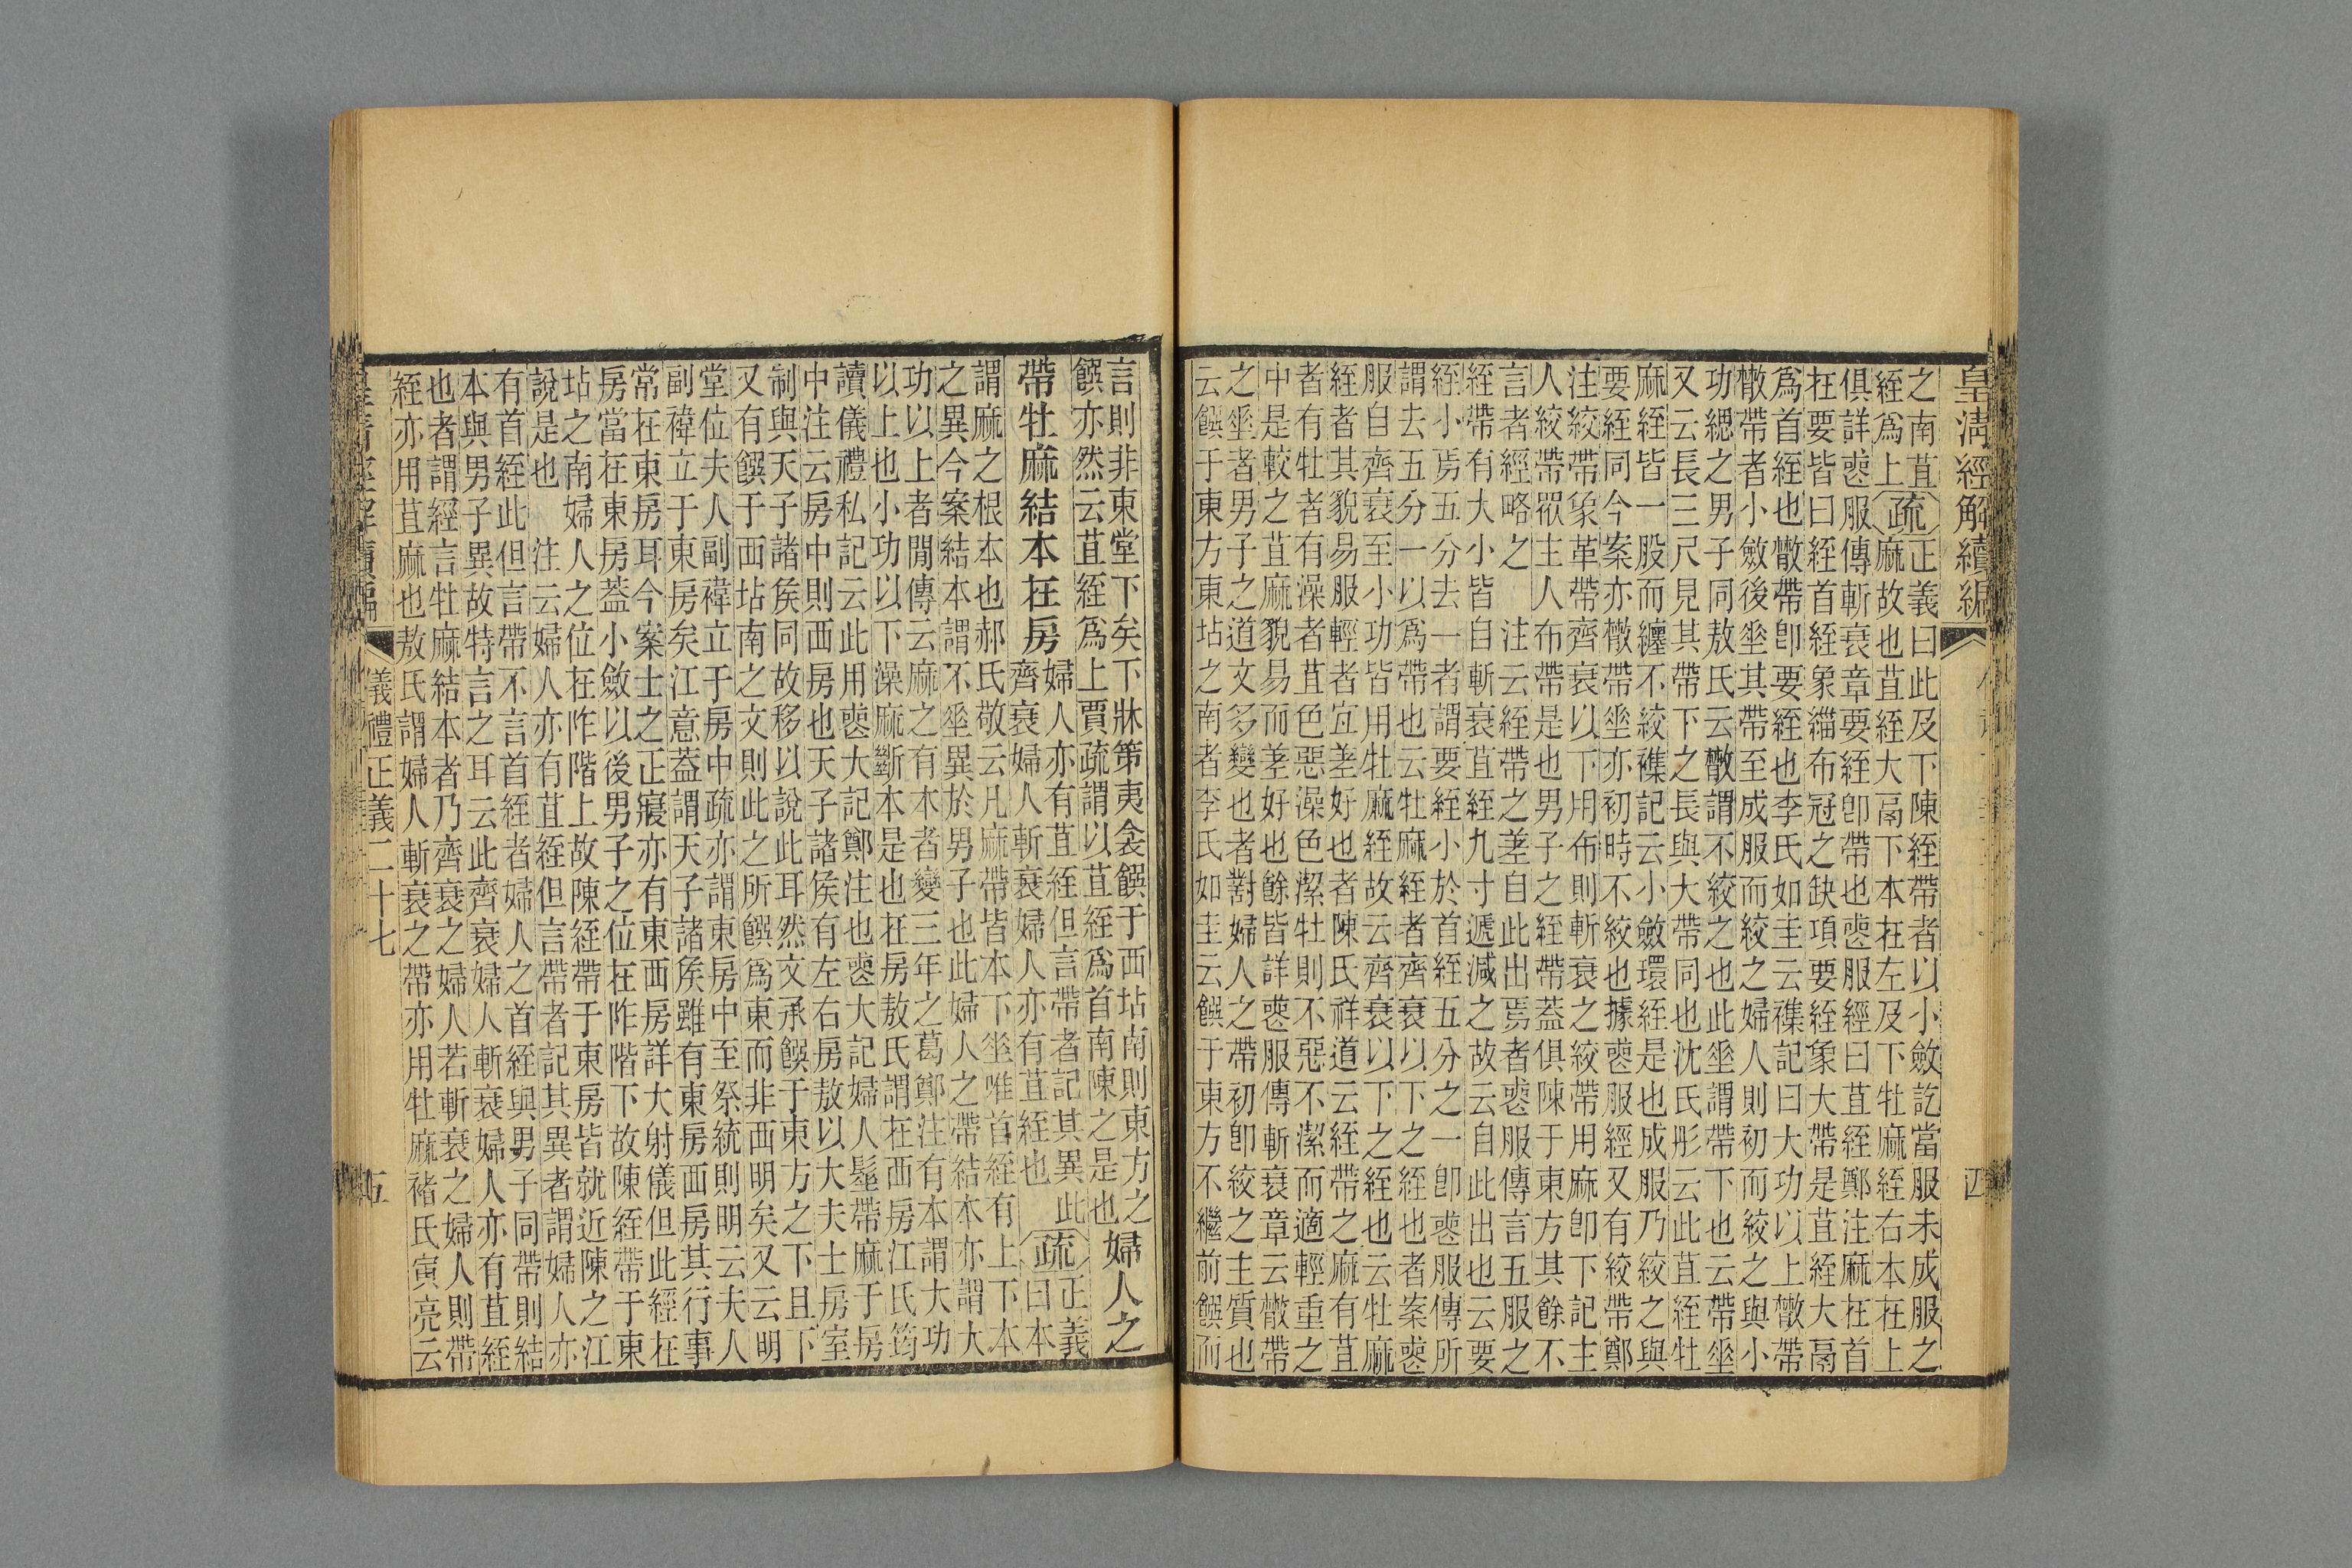 皇清經解續編
之南苴
絰爲上
疏
正義曰此及下陳絰帶者以小斂訖當服未成服之
麻故也苴絰大鬲下本在左及下牡麻絰右本在上
俱詳喪服傳斬衰章要絰卽帶也喪服經曰苴絰鄭注麻在首
在要皆曰絰首絰象緇布冠之缺項要絰象大帶是苴絰大鬲
爲首絰也散帶卽要絰也李氏如圭云襍記曰大功以上散帶
散帶者小斂後垂其帶至成服而絞之婦人則初而絞之與小
功緦之男子同敖氏云散謂不絞之也此垂謂帶下也云帶垂
又云長三尺見其帶下之長與大帶同也沈氏彤云此苴絰牡
麻絰皆一股而纏不絞襍記云小斂環絰是也成服乃絞之與
要絰同今案亦散帶垂亦初時不絞也據喪服經又有絞帶鄭
注絞帶象革帶齊衰以下用布則斬衰之絞帶用麻卽下記主
人絞帶眾主人布帶是也男子之絰帶蓋俱陳于東方其餘不
言者經略之 注云絰帶之差自此出焉者喪服傳言五服之
絰帶有大小皆自斬衰苴絰九寸遞減之故云自此出也云要
絰小焉五分去一者謂要絰小於首絰五分之一卽喪服傳所
謂去五分一以爲帶也云牡麻絰者齊衰以下之絰也者案喪
服自齊衰至小功皆用牡麻絰故云齊衰以下之絰也云牡麻
絰者其貌易服輕者宜差好也者陳氏祥道云絰帶之麻有苴
者有牡者有澡者苴色惡澡色潔牡則不惡不潔而適輕重之
中是較之苴麻貌易而差好也餘皆詳喪服傳斬衰章云散帶
之垂者男子之道文多變也者對婦人之帶初卽絞之主質也
云饌于東方東坫之南者李氏如圭云饌于東方不繼前饌而
四
言則非東堂下矣下牀第夷衾饌于西坫南則東方之
饌亦然云苴絰爲上賈疏謂以苴絰爲首南陳之是也
婦人之
帶牡麻結本在房
婦人亦有苴絰但言帶者記其異此
齊衰婦人斬衰婦人亦有苴絰也
疏
正義
曰本
謂麻之根本也郝氏敬云凡麻帶皆本下垂唯首絰有上下本
之異今案結本謂不垂異於男子也此婦人之帶結本亦謂大
功以上者閒傳云麻之有本者變三年之葛鄭注有本謂大功
以上也小功以下澡麻斷本是也在房敖氏謂在西房江氏筠
讀儀禮私記云此用喪大記鄭注也喪大記婦人髽帶麻于房
中注云房中則西房也天子諸侯有左右房敖以大夫士房室
制與天子諸侯同故移以說此耳然文承饌于東方之下且下
又有饌于西坫南之文則此之所饌爲東而非西明矣又云明
堂位夫人副褘立于房中疏亦謂東房中至祭統則明云夫人
副褘立于東房矣江意蓋謂天子諸侯雖有東房西房其行事
常在東房耳今案士之正寢亦有東西房詳大射儀但此經在
房當在東房蓋小斂以後男子之位在阼階下故陳絰帶于東
坫之南婦人之位在阼階上故陳絰帶于東房皆就近陳之江
說是也 注云婦人亦有苴絰但言帶者記其異者謂婦人亦
有首絰此但言帶不言首絰者婦人之首絰與男子同帶則結
本與男子異故特言之耳云此齊衰婦人斬衰婦人亦有苴絰
也者謂經言牡麻結本者乃齊衰之婦人若斬衰之婦人則帶
絰亦用苴麻也敖氏謂婦人斬衰之帶亦用牡麻褚氏寅亮云
儀禮正義二十七
五